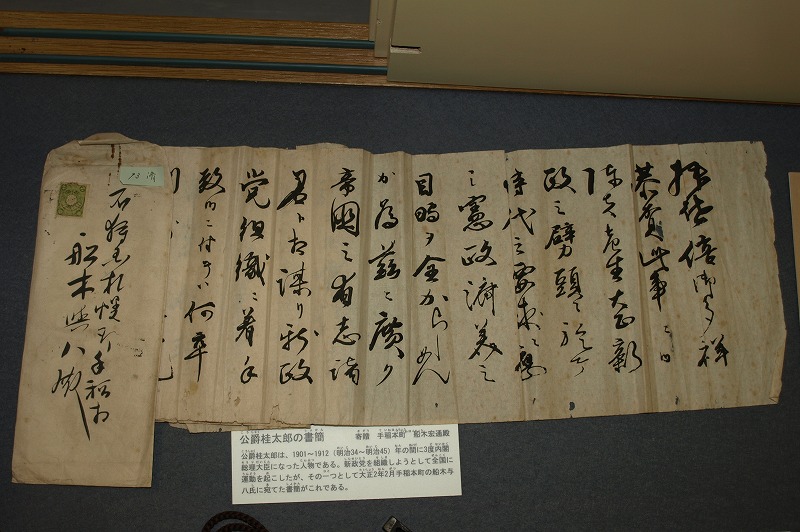 拝啓倍御多祥
恭賀此事ニ
陳者老生大正新
政之劈頭ニ於テ
時代之要求ニ
之憲政済美之
目的ヲ全からしめん
か為茲ニ廣ク
帝國之有志諸
君ト相謀リ新政
党組織ニ着手
致候ニ付テハ何卒
石狩国札幌郡手稲村
船木與八殿
公爵桂太郎の書簡　寄贈　手稲本町　船木宏通殿
公爵桂太郎は、1901～1912（明治34～明治45）年の間に3度内閣
総理大臣になった人物である。新政党を組織しようとして全国に
運動を起こしたが、その一つとして大正2年2月手稲本町の船木与
八氏に宛てた書簡がこれである。